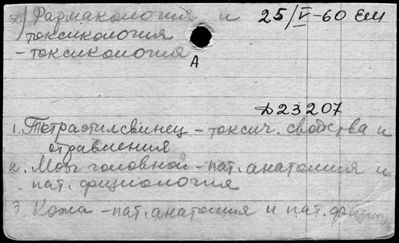 2) Фармакология и
токсикология
- токсикология
25/V-60 ЕМ
А
Д23207
1. Тетраэтилсвинец - токсич. свойства и
отравления
2. Мозг головной - пат. анатомия и
пат. физиология
3. Кожа - пат. анатомия и пат. физиол